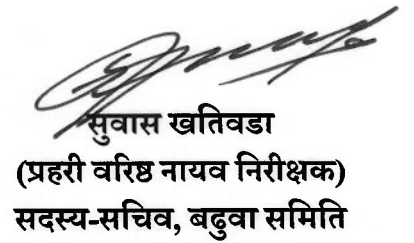 सुवास खतिवडा
(प्रहरी वरिष्ठ नायव निरीक्षक)
सदस्य-सचिव, बढुवा समिति